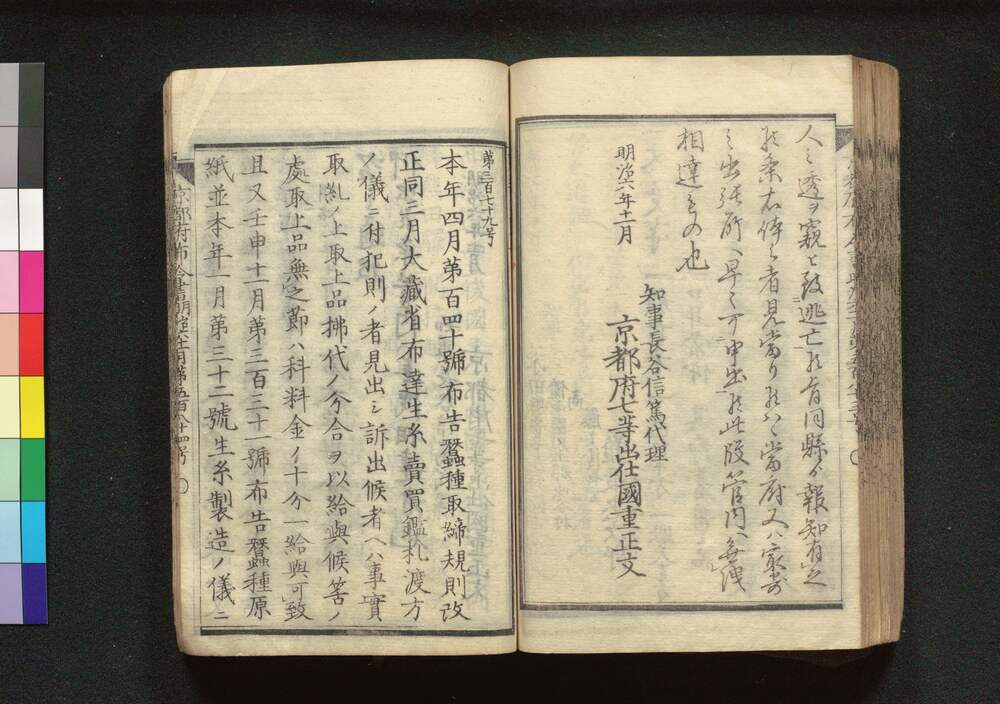 人之透ヲ窺ヒ致逃亡候旨同縣ゟ報知有之
候条右体之者見當リ候ハヽ當府又ハ最寄
之出張所ヘ早々可申出候此段管内ヘ無洩
相達もの也
明治六年十一月
知事長谷信篤代理
京都府七等出仕國重正文
第三百七十九号
本年四月第百四十號布告蠶種取締規則改
正同三月大藏省布達生糸賣買鑑札渡方
ノ儀ニ付犯則ノ者見出シ訴出候者ヘハ事實
取糺ノ上取上品拂代ノ分合ヲ以給與候筈ノ
處取上品無之節ハ科料金ノ十分一給與可致
且又壬申十一月第三百三十一號布告蠶種原
紙並本年一月第三十二號生糸製造ノ儀ニ
京都府布令書明治六年十一月第五百六十四号